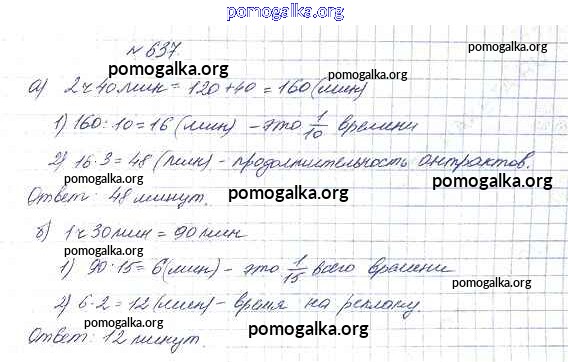 pomogalka.org
№ 637.
pomogalka.org pomogalka.org
а) 2 ч 40 мин = 120 + 40 = 160 (мин)
pomogalka.org pomogalka.org
1) 160 : 10 = 16 (мин) - это 1/10 времени
pomogalka.org pomogalka.org
2) 16 · 3 = 48 (мин) - продолжительность антрактов.
pomogalka.org pomogalka.org
Ответ: 48 минут.
pomogalka.org
б) 1 ч 30 мин = 90 мин
pomogalka.org
1) 90 : 15 = 6 (мин) - это 1/15 всего времени
pomogalka.org
2) 6 · 2 = 12 (мин) - время на рекламу.
pomogalka.org pomogalka.org
Ответ: 12 минут.